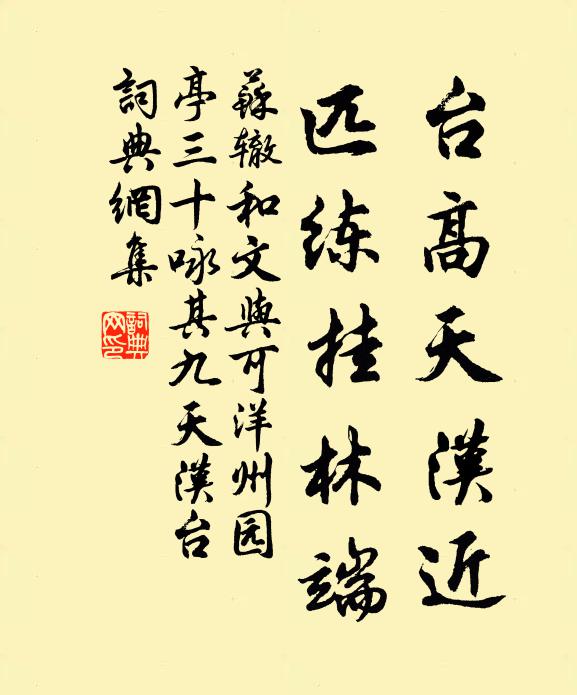 台高天漢近
匹练挂林端
蘇辙和文與可洋州园
亭三十咏其九天漢台
詞典網集
詞典网印